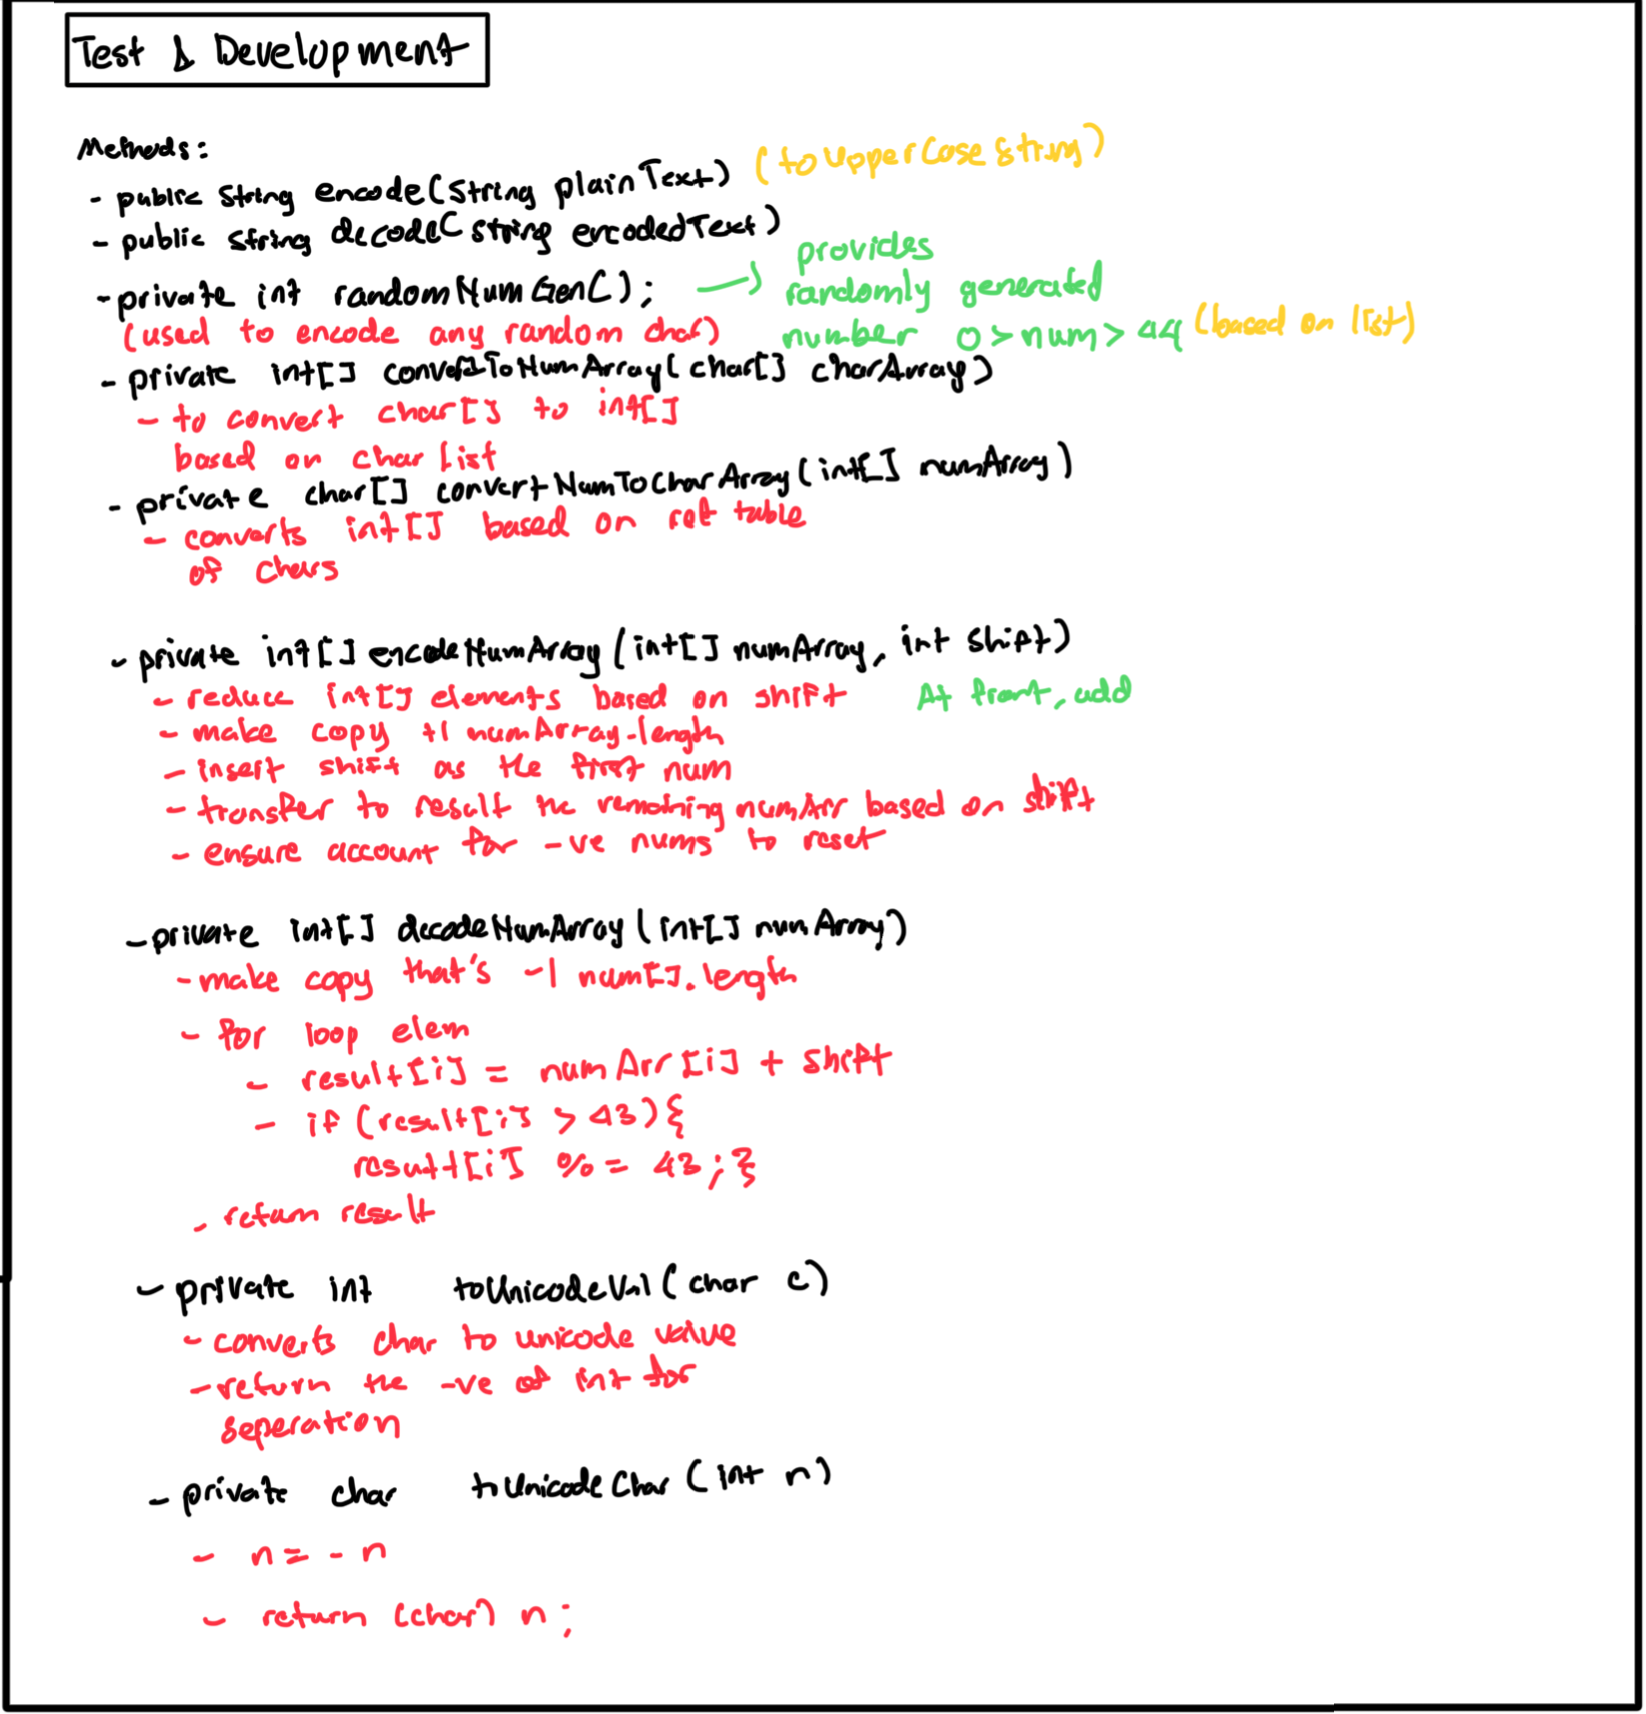 Test & Development
Methods:
- public string encode(String plainText) (toUpperCase string)
- public string decode(string encodedText)
- private int randomNumGen(); → provides
randomly generated
number 0 > num > 44 (based on list)
(used to encode any random char)
- private int[] convertToNumArray(char[] charArray)
- to convert char[] to int[]
based on char list
- private char[] convertNumToCharArray(int[] numArray)
- converts int[] based on ref table
of chars
- private int[] encodeNumArray(int[] numArray, int shift)
- reduce int[] elements based on shift At front, add
- make copy +1 numArray.length
- insert shift as the first num
- transfer to result the remaining numArr based on shift
- ensure account for -ve nums to reset
- private int[] decodeNumArray(int[] numArray)
- make copy that's -1 num[].length
- for loop elem
- result[i] = numArr[i] + shift
- if (result[i] > 43){
result[i] %= 43;}
- return result
- private int toUnicodeVal(char c)
- converts char to unicode value
- return the -ve of int for
seperation
- private char toUnicodeChar(int n)
- n = - n
- return (char) n;